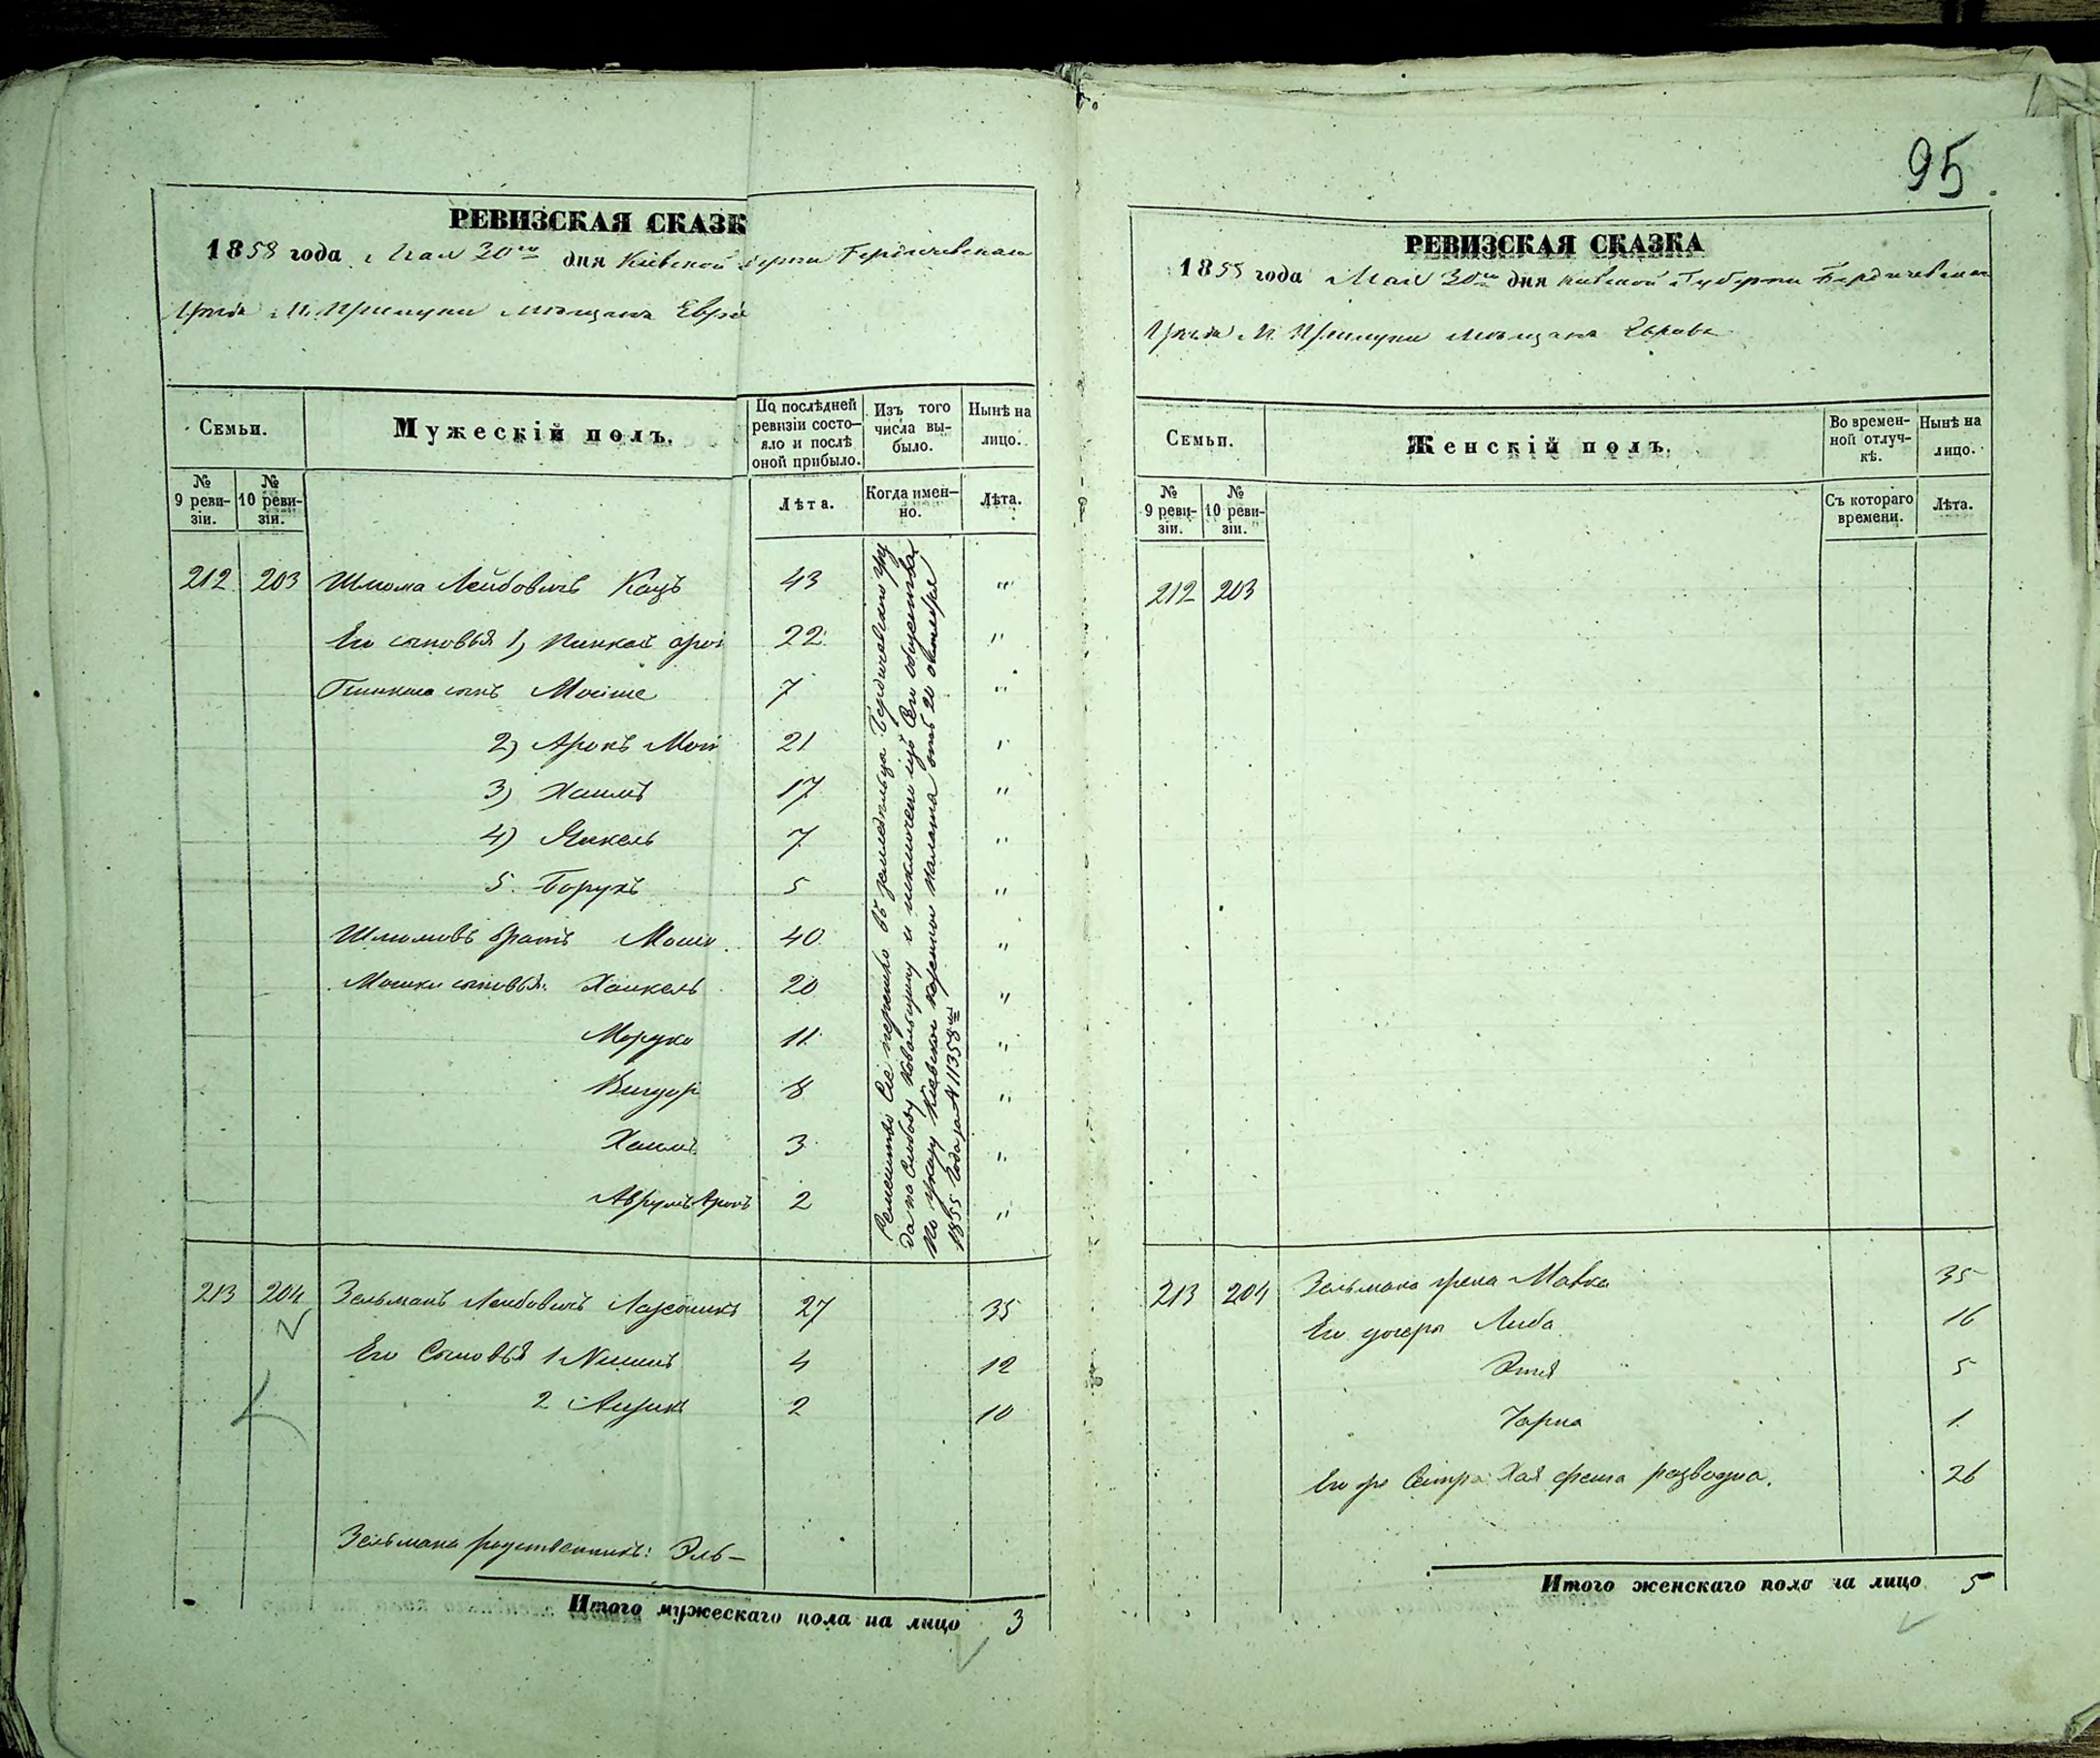 95.
РЕВИЗСКАЯ СКАЗК
1858 года Мая 30го дня Киевской Бердичевскаго
Уѣзда М. Прилуки мѣщанъ Еврѣ
Семьи.
Мужескій полъ.
По послѣдней ревизіи состояло и послѣ оной прибыло.
Изъ того числа выбыло.
Нынѣ на лицо.
№ 9 ревизіи.
№ 10 ревизіи.
Лѣта.
Когда именно.
Лѣта.
212 203 Шлиома Лейбовичъ Кацъ 43 "
Его сыновья 1, Пинхас 22 "
Пинхаса сынъ Мошке 7 "
2) Аронъ 21 "
3) Хаимъ 17 "
4) Янкель 7 "
5. Борухъ 5 "
Шлиомовъ братъ Мошко 40 "
Мошки сыновья: Хаикель 20 "
Мордко 11 "
Вигдор 8 "
Хаимъ 3 "
Аврумъ Аронъ 2 "
Семейство Сіе перешло въ земледельца Бердичевскаго Уез
да на Слободу и изключено изъ Сего общества
По Указу Киевской Казенной Палаты отъ 20 октября
1855 Года за № 11358м
213 204 Зельманъ Лейбовичъ 27 35
Его Сыновья 1 4 12
2 Аизикъ 2 10
Зельмана родственникъ: Эль-
Итого мужескаго пола на лицо 3
РЕВИЗСКАЯ СКАЗКА
1858 года Мая 30го дня Киевской Губерни Бердичевскаго
Уѣзда М. Прилуки мѣщанъ Еврѣевъ
Семьи.
Женскій полъ.
Во временной отлучкѣ.
Нынѣ на лицо.
№ 9 ревизіи.
№ 10 ревизіи.
Съ котораго времени.
Лѣта.
212 203
213 204 Зельмана жена Малка 35
Его дочери Либа 16
Этя 5
Чарна 1
Его же Сестра Хая фреида разводна. 26
Итого женскаго пола на лицо 5